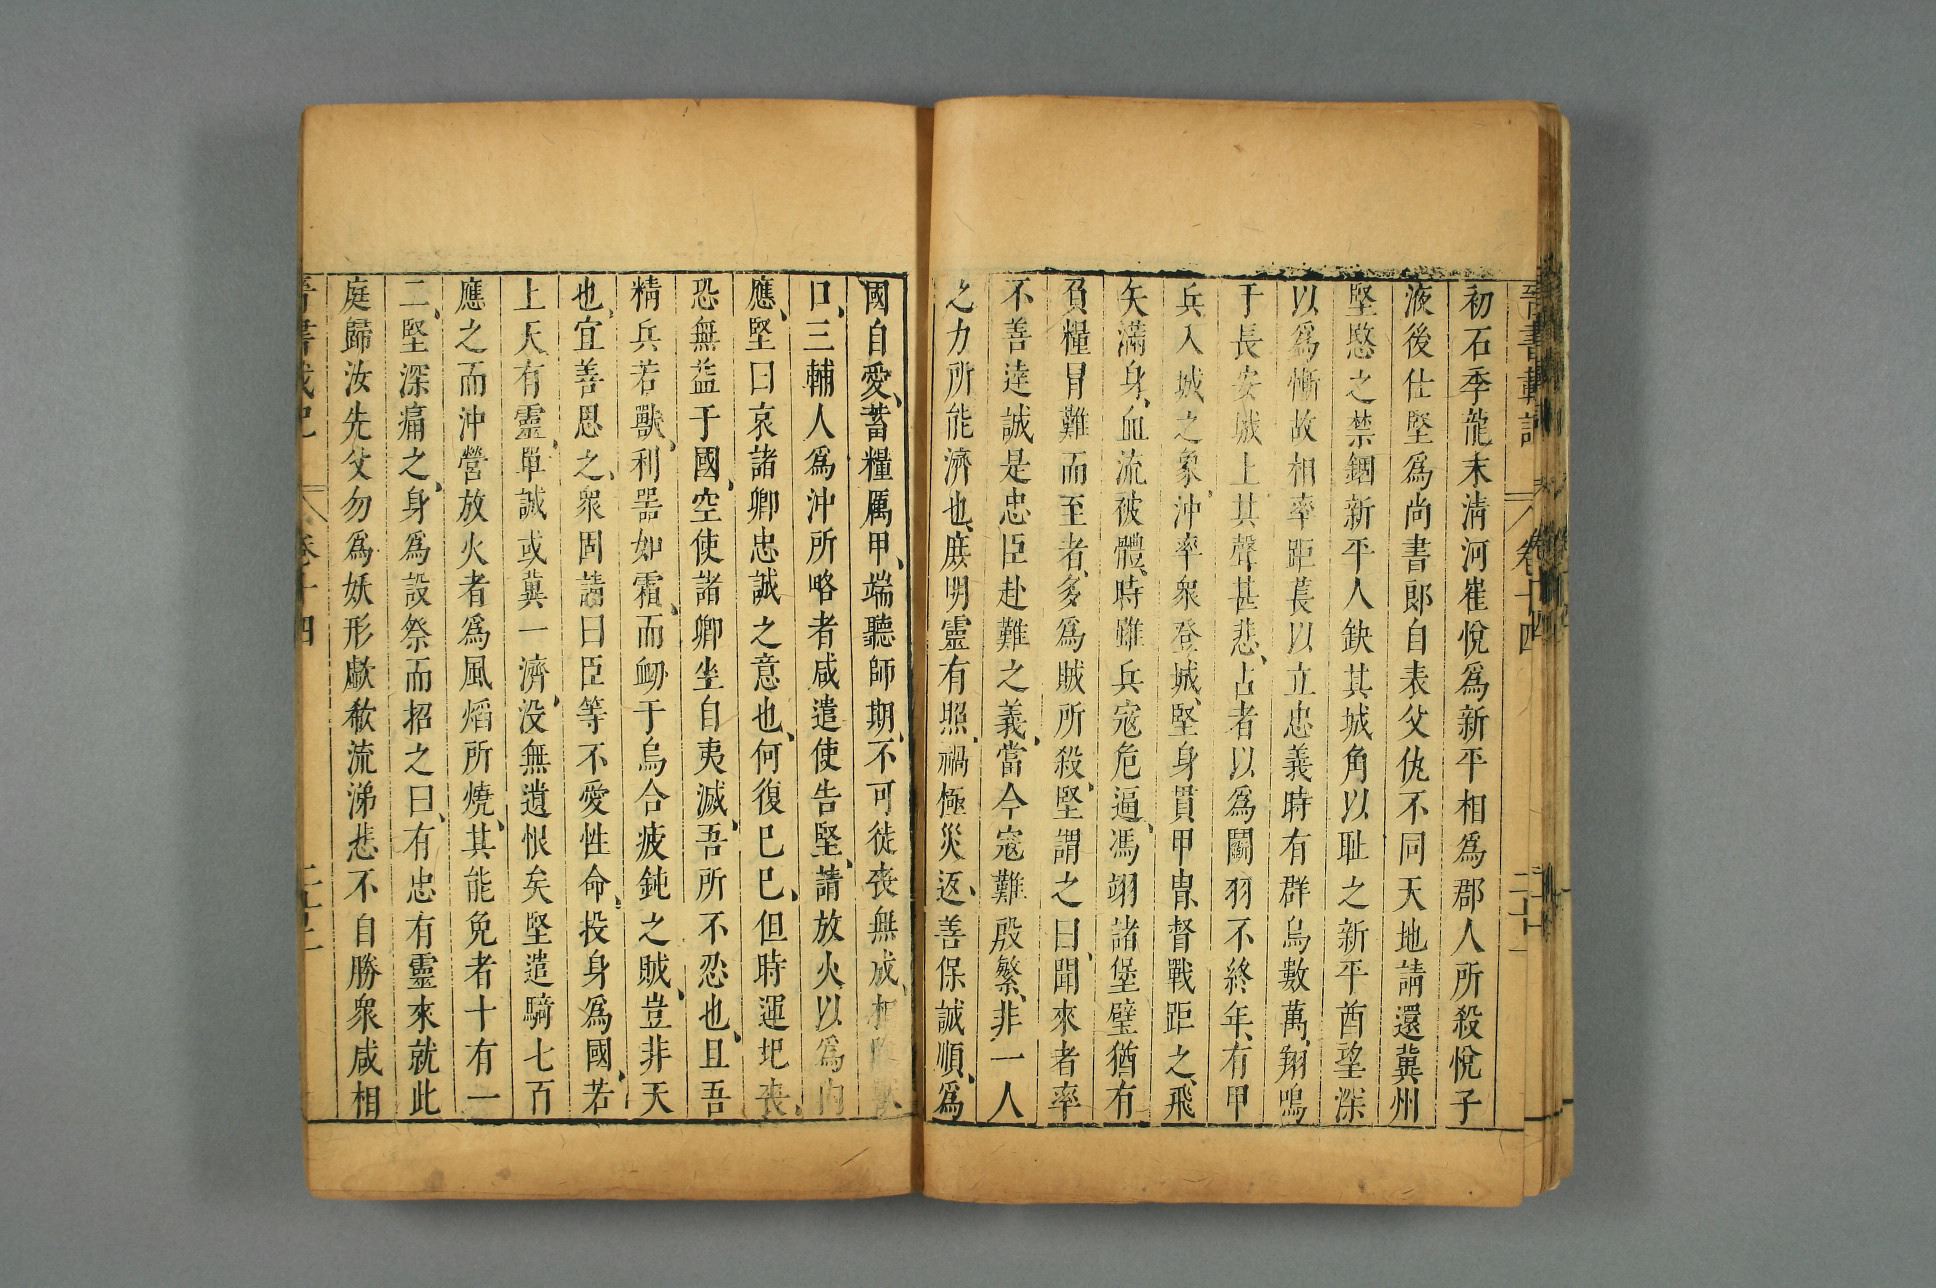 晉書載記 卷十四 二十一
初石季龍末清河崔悅爲新平相爲郡人所殺悅子
液後仕堅爲尚書郎自表父仇不同天地請還冀州
堅愍之禁錮新平人缺其城角以耻之新平酋望深
以爲慚故相率距萇以立忠義時有群烏數萬翔鳴
于長安城上其聲甚悲占者以爲鬬羽不終年有甲
兵入城之象沖率衆登城堅身貫甲冑督戰距之飛
矢滿身血流被體時雖兵寇危逼馮翊諸堡壁猶有
負糧冒難而至者多爲賊所殺堅謂之曰聞來者率
不善達誠是忠臣赴難之義當今寇難殷繁非一人
之力所能濟也庶明靈有照禍極災返善保誠順爲
國自愛蓄糧厲甲端聽師期不可徒喪無成相
口三輔人爲沖所略者咸遣使告堅請放火以爲內
應堅曰哀諸卿忠誠之意也何復巳巳但時運圯喪
恐無益于國空使諸卿坐自夷滅吾所不忍也且吾
精兵若獸利噐如霜而衂于烏合疲鈍之賊豈非天
也宜善思之衆固請曰臣等不愛性命投身爲國若
上天有靈單誠或冀一濟没無遺恨矣堅遣騎七百
應之而沖營放火者爲風焰所燒其能免者十有一
二堅深痛之身爲設祭而招之曰有忠有靈來就此
庭歸汝先父勿爲妖形歔欷流涕悲不自勝衆咸相
晉書載記 卷十四